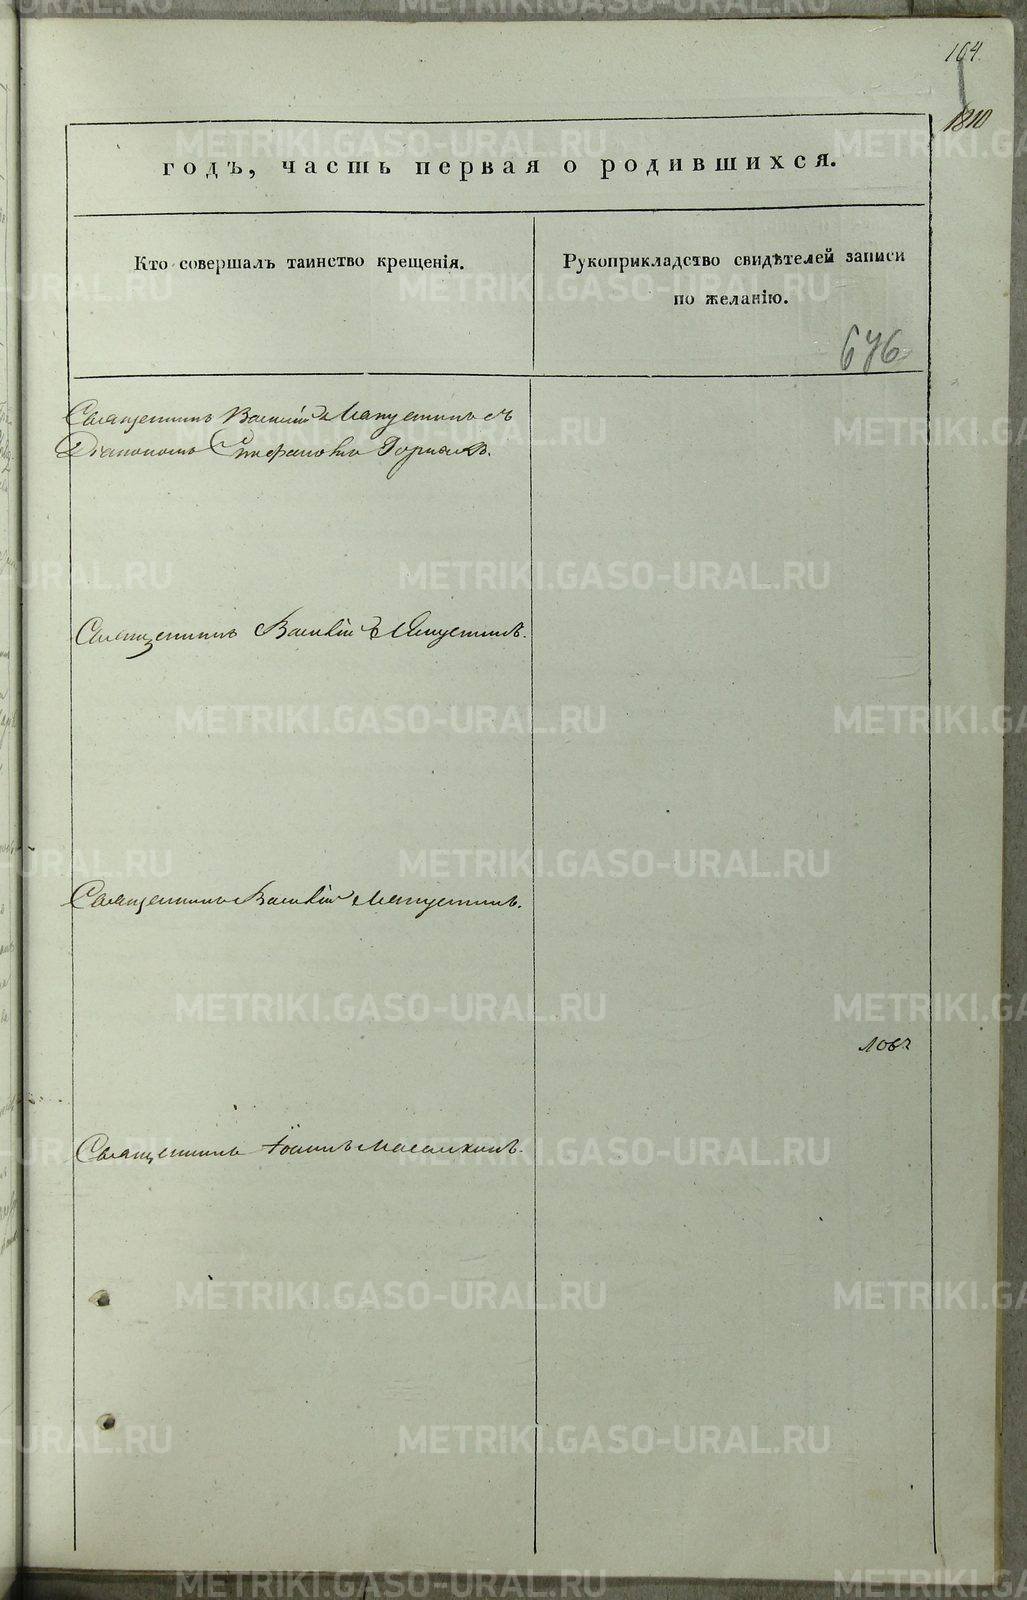 164.
1810
годъ, часть первая о родившихся.
Кто совершалъ таинство крещенія.
Рукоприкладство свидѣтелей записи
по желанію.
676
Священникъ Василій Капустинъ съ
Діакономъ Стефаномъ
Священникъ Василій Капустинъ.
Священникъ Василій Капустинъ.
ловъ
Священникъ Іоаннъ
METRIKI.GASO-URAL.RU